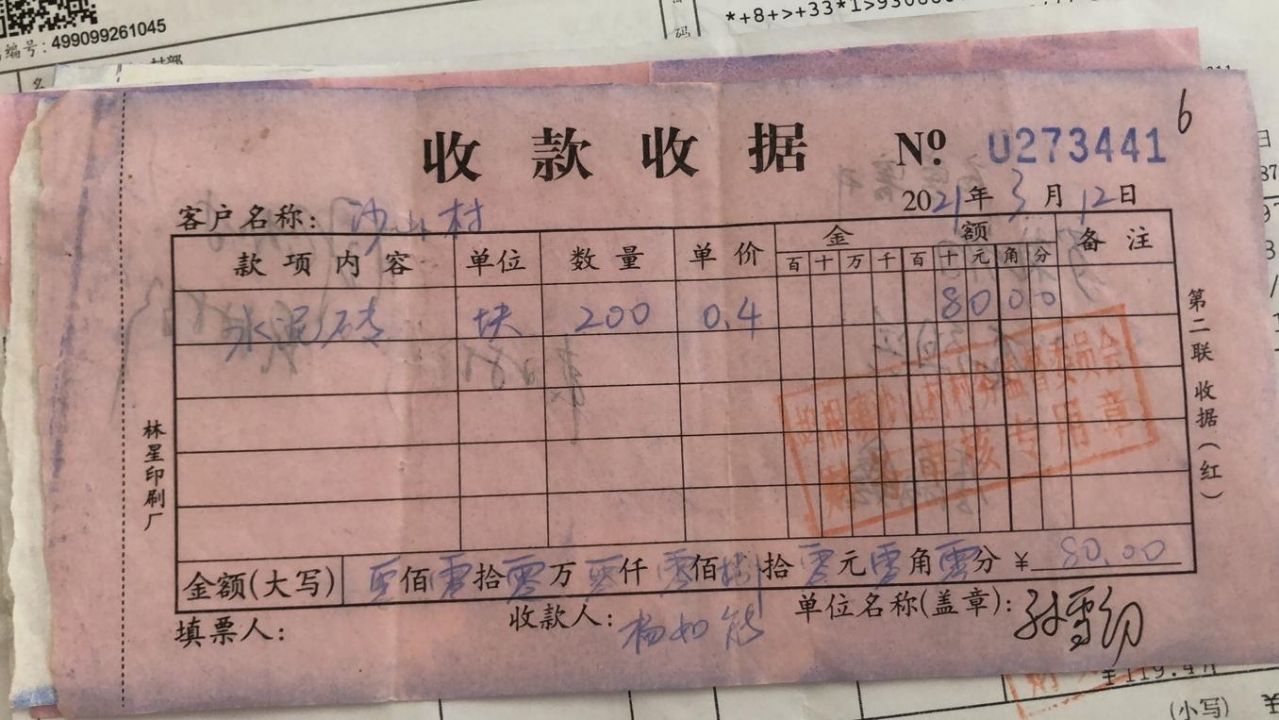 编号: 499099261045
码
*+8+>+33*1>930860
收款收据 № 0273441
6
2021年3月12日
客户名称: 沙山村
款项内容 单位 数量 单价 金额 备注
百十万千百十元角分
水泥砖 块 200 0.4 8000
监督委员会
财务审核专用章
第二联 收据(红)
林星印刷厂
金额(大写) 零佰零拾零万零仟零佰捌拾零元零角零分 ¥ 80.00
填票人: 收款人: 杨如 单位名称(盖章):
¥119.4
(小写) ¥